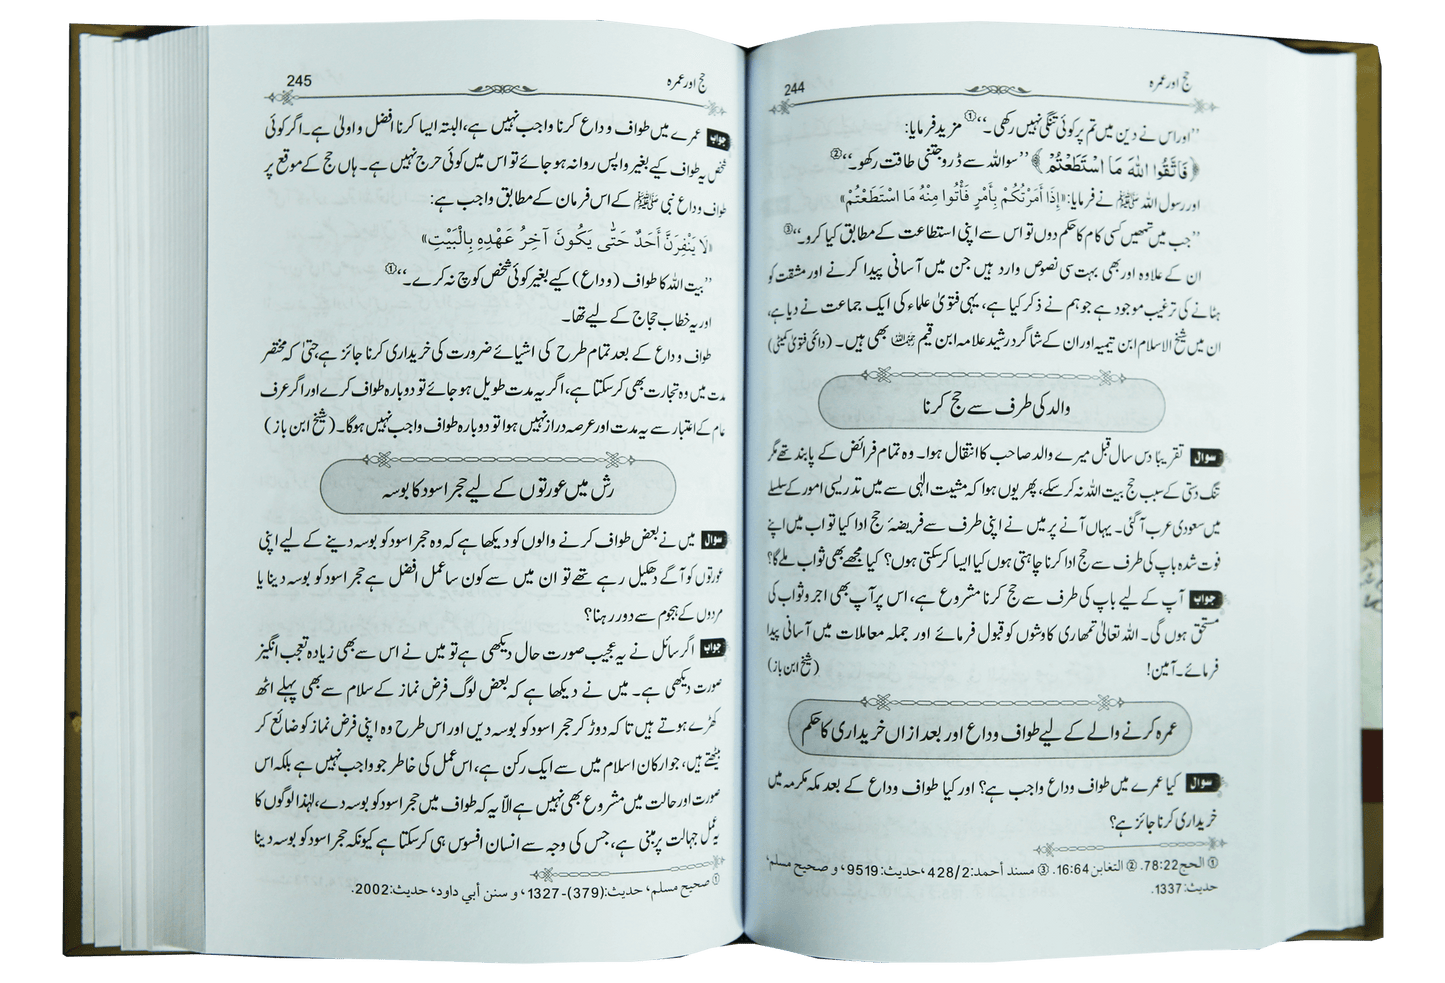 حج اور عمرہ 244
’’اور اس نے دین میں تم پر کوئی تنگی نہیں رکھی۔‘‘① مزید فرمایا:
﴿فَاتَّقُوا اللّٰهَ مَا اسْتَطَعْتُمْ﴾ ’’سو اللہ سے ڈرو جتنی طاقت رکھو۔‘‘②
اور رسول اللہ ﷺ نے فرمایا: «إِذَا أَمَرْتُكُمْ بِأَمْرٍ فَأْتُوا مِنْهُ مَا اسْتَطَعْتُمْ»
’’جب میں تمھیں کسی کام کا حکم دوں تو اس سے اپنی استطاعت کے مطابق کیا کرو۔‘‘③
ان کے علاوہ اور بھی بہت سی نصوص وارد ہیں جن میں آسانی پیدا کرنے اور مشقت کو
ہٹانے کی ترغیب موجود ہے جو ہم نے ذکر کیا ہے، یہی فتویٰ علماء کی ایک جماعت نے دیا ہے،
ان میں شیخ الاسلام ابن تیمیہ اور ان کے شاگرد رشید علامہ ابن قیم رحمہما اللہ بھی ہیں۔ (دائمی فتویٰ کمیٹی)
والد کی طرف سے حج کرنا
سوال تقریبًا دس سال قبل میرے والد صاحب کا انتقال ہوا۔ وہ تمام فرائض کے پابند تھے مگر
تنگ دستی کے سبب حج بیت اللہ نہ کر سکے، پھر یوں ہوا کہ مشیت الٰہی سے میں تدریسی امور کے سلسلے
میں سعودی عرب آ گئی۔ یہاں آنے پر میں نے اپنی طرف سے فریضۂ حج ادا کیا تو اب میں اپنے
فوت شدہ باپ کی طرف سے حج ادا کرنا چاہتی ہوں کیا ایسا کر سکتی ہوں؟ کیا مجھے بھی ثواب ملے گا؟
جواب آپ کے لیے باپ کی طرف سے حج کرنا مشروع ہے، اس پر آپ بھی اجر و ثواب کی
مستحق ہوں گی۔ اللہ تعالیٰ تمھاری کاوشوں کو قبول فرمائے اور جملہ معاملات میں آسانی پیدا
فرمائے۔ آمین! (شیخ ابن باز)
عمرہ کرنے والے کے لیے طواف وداع اور بعد ازاں خریداری کا حکم
سوال کیا عمرے میں طواف وداع واجب ہے؟ اور کیا طواف وداع کے بعد مکہ مکرمہ میں
خریداری کرنا جائز ہے؟
① الحج 78:22. ② التغابن 16:64. ③ مسند أحمد: 428/2، حدیث: 9519، و صحیح مسلم،
حدیث: 1337.
حج اور عمرہ 245
جواب عمرے میں طواف وداع کرنا واجب نہیں ہے، البتہ ایسا کرنا افضل و اولیٰ ہے۔ اگر کوئی
شخص یہ طواف کیے بغیر واپس روانہ ہو جائے تو اس میں کوئی حرج نہیں ہے۔ ہاں حج کے موقع پر
طواف وداع نبی ﷺ کے اس فرمان کے مطابق واجب ہے:
«لَا يَنْفِرَنَّ أَحَدٌ حَتّٰى يَكُونَ آخِرُ عَهْدِهِ بِالْبَيْتِ»
’’بیت اللہ کا طواف (وداع) کیے بغیر کوئی شخص کوچ نہ کرے۔‘‘①
اور یہ خطاب حجاج کے لیے تھا۔
طواف وداع کے بعد تمام طرح کی اشیائے ضرورت کی خریداری کرنا جائز ہے، حتیٰ کہ مختصر
مدت میں وہ تجارت بھی کر سکتا ہے، اگر یہ مدت طویل ہو جائے تو دوبارہ طواف کرے اور اگر عرف
عام کے اعتبار سے یہ مدت اور عرصہ دراز نہیں ہوا تو دوبارہ طواف واجب نہیں ہوگا۔ (شیخ ابن باز)
رش میں عورتوں کے لیے حجر اسود کا بوسہ
سوال میں نے بعض طواف کرنے والوں کو دیکھا ہے کہ وہ حجر اسود کو بوسہ دینے کے لیے اپنی
عورتوں کو آگے دھکیل رہے تھے تو ان میں سے کون سا عمل افضل ہے حجر اسود کو بوسہ دینا یا
مردوں کے ہجوم سے دور رہنا؟
جواب اگر سائل نے یہ عجیب صورت حال دیکھی ہے تو میں نے اس سے بھی زیادہ تعجب انگیز
صورت دیکھی ہے۔ میں نے دیکھا ہے کہ بعض لوگ فرض نماز کے سلام سے بھی پہلے اٹھ
کھڑے ہوتے ہیں تا کہ دوڑ کر حجر اسود کو بوسہ دیں اور اس طرح وہ اپنی فرض نماز کو ضائع کر
بیٹھتے ہیں، جو ارکان اسلام میں سے ایک رکن ہے، اس عمل کی خاطر جو واجب نہیں ہے بلکہ اس
صورت اور حالت میں مشروع بھی نہیں ہے الّا یہ کہ طواف میں حجر اسود کو بوسہ دے، لہٰذا لوگوں کا
یہ عمل جہالت پر مبنی ہے، جس کی وجہ سے انسان افسوس ہی کر سکتا ہے کیونکہ حجر اسود کو بوسہ دینا
① صحیح مسلم، حدیث: (379)-1327، و سنن أبي داود، حدیث: 2002.